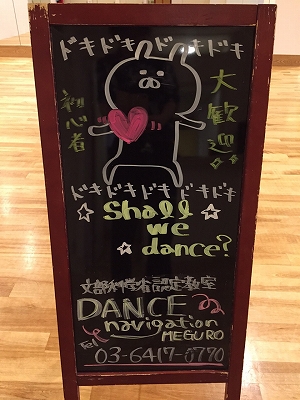 ドキドキドキドキ
初心者
大歓迎
ドキドキドキドキドキ
Shall
we
dance?
文部科学省認定教室
DANCE
navigation
MEGURO
Tel
03-6417-0770